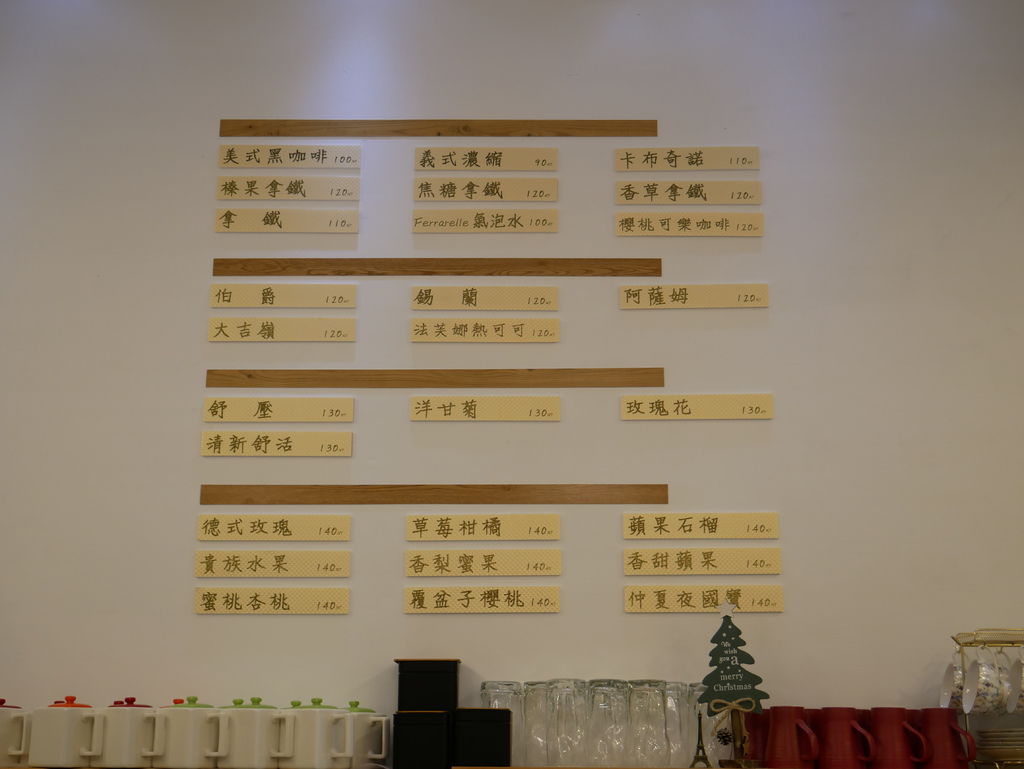 美式黑咖啡 100元 義式濃縮 90元 卡布奇諾 110元
榛果拿鐵 120元 焦糖拿鐵 120元 香草拿鐵 120元
拿鐵 110元 Ferrarelle 氣泡水 100元 櫻桃可樂咖啡 120元
伯爵 120元 錫蘭 120元 阿薩姆 120元
大吉嶺 120元 法芙娜熱可可 120元
舒壓 130元 洋甘菊 130元 玫瑰花 130元
清新舒活 130元
德式玫瑰 140元 草莓柑橘 140元 蘋果石榴 140元
貴族水果 140元 香梨蜜果 140元 香甜蘋果 140元
蜜桃杏桃 140元 覆盆子櫻桃 140元 仲夏夜國 140元
We
wish
you a
merry
Christmas